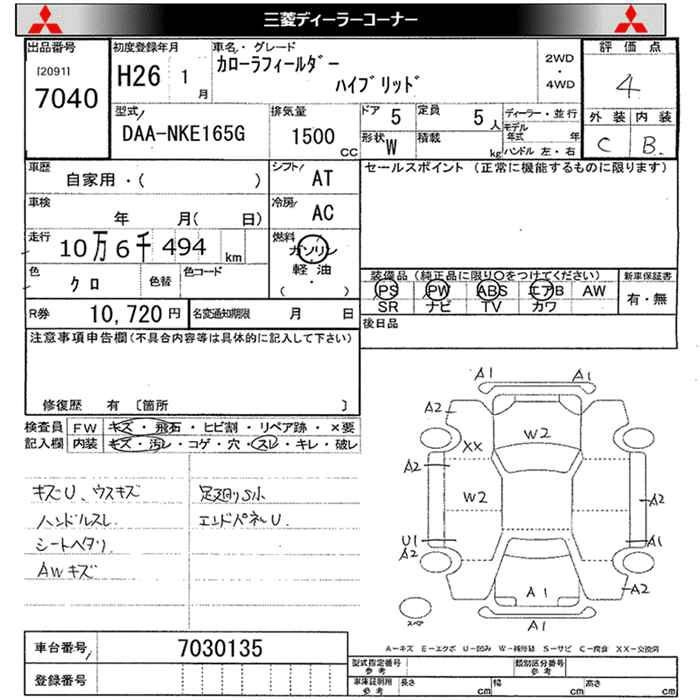 三菱ディーラーコーナー
出品番号 初度登録年月 車名・グレード 評価点
(2091) 7040 H26 1 月 カローラフィールダー ハイブリッド 2WD・4WD 4
型式 DAA-NKE165G 排気量 1500 CC ドア 5 定員 5 人 ディーラー・並行 外装 内装
形状 W 積載 kg モデル年式 年 ハンドル 左・右 C B.
車歴 自家用・( ) シフト AT セールスポイント (正常に機能するものに限ります)
車検 年 月( 日) 冷房 AC
走行 10万6千494 km 燃料 ガソリン 軽油 ・ ( )
色 クロ 色替 色コード 装備品 (純正品に限り○をつけてください) 新車保証書
PS PW ABS エアB AW 有・無
SR ナビ TV カワ
R券 10,720 円 名変通知期限 月 日 後日品
注意事項申告欄(不具合内容等は具体的に記入して下さい)
修復歴 有 〔箇所 〕
検査員 FW キズ・飛石・ヒビ割・リペア跡・×要
記入欄 内装 キズ・汚レ・コゲ・穴・スレ・キレ・破レ
キズU、ウスキズ 足廻りS小
ハンドルスレ エンドパネルU
シートヘタリ
AWキズ
A1 A1
A2 A2
XX W2
A2 W2 A2
U1 A2 A1
A1 A2
スペア A1
A-キズ E-エクボ U-凹み W-補修跡 S-サビ C-腐食 XX-交換済
車台番号 7030135
登録番号
型式指定番号 参考 類別区分番号 参考
車庫証明用 参考 長さ cm 幅 cm 高さ cm